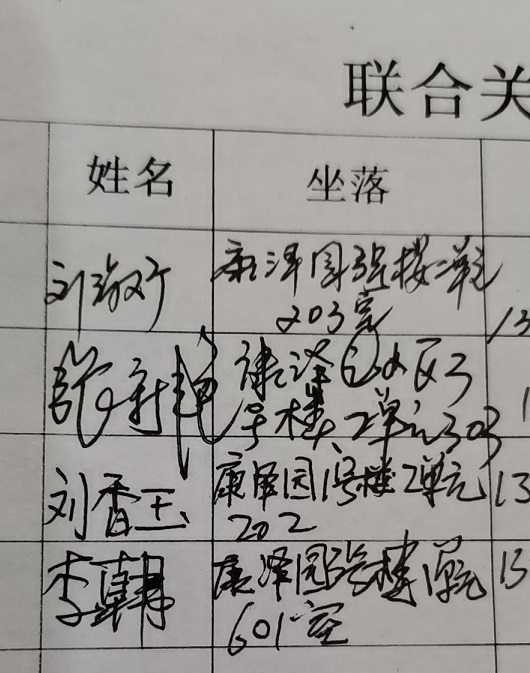 联合关
姓名 坐落
刘 康泽园3号楼2单元
203室 13
新艳 康泽园小区3
号楼2单元303 1
刘香玉 康泽园1号楼2单元 13
202
李韩 康泽园3号楼1单元 13
601室